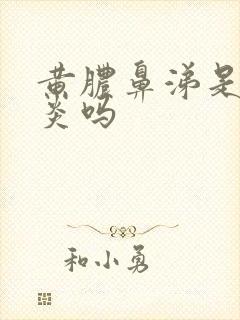 黄膿鼻涕是
炎吗
和小勇